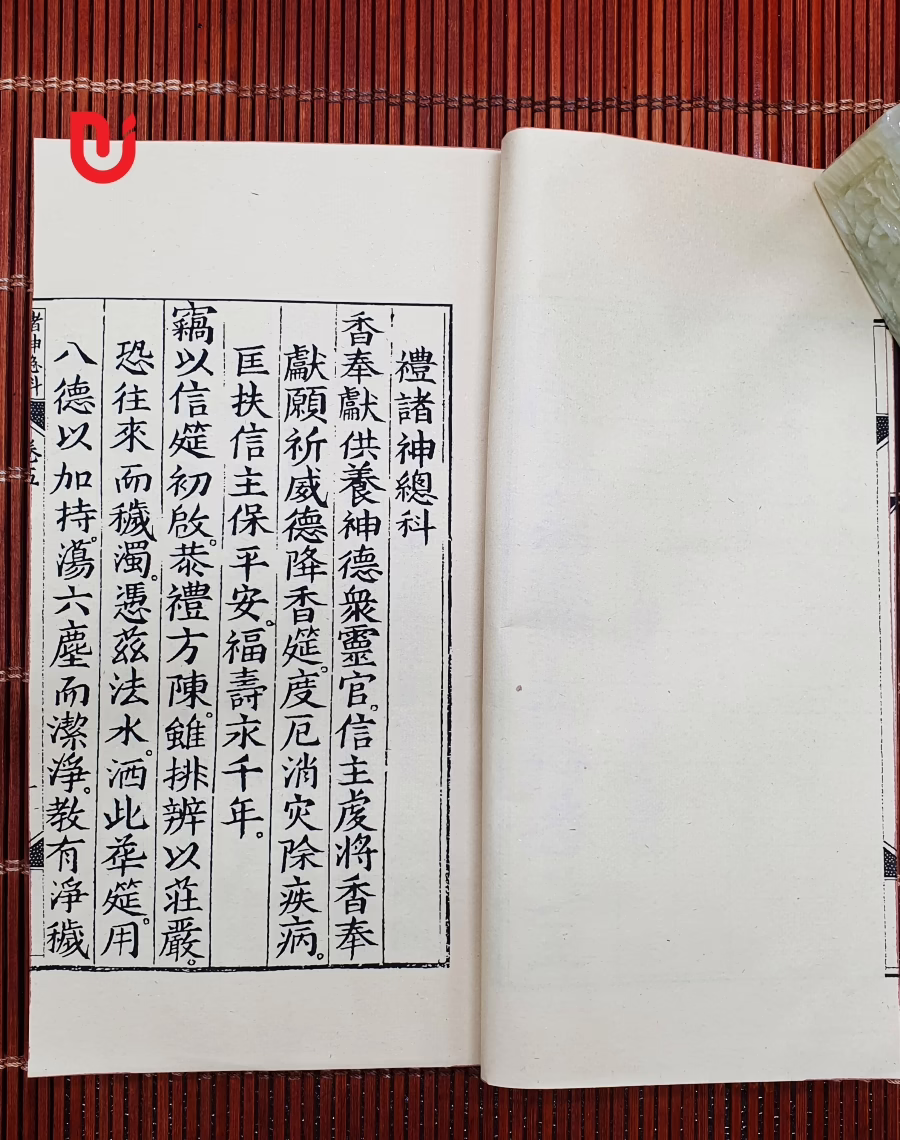 禮諸神總科
香奉獻供養神德衆靈官。信主虔將香奉
獻願祈威德降香筵。度厄消灾除疾病。
匡扶信主保平安。福壽永千年。
竊以信筵初啟。恭禮方陳。雖排辨以莊嚴。
恐往來而穢濁。憑茲法水。洒此華筵。用
八德以加持。蕩六塵而潔淨。教有淨穢
諸神總科 卷五